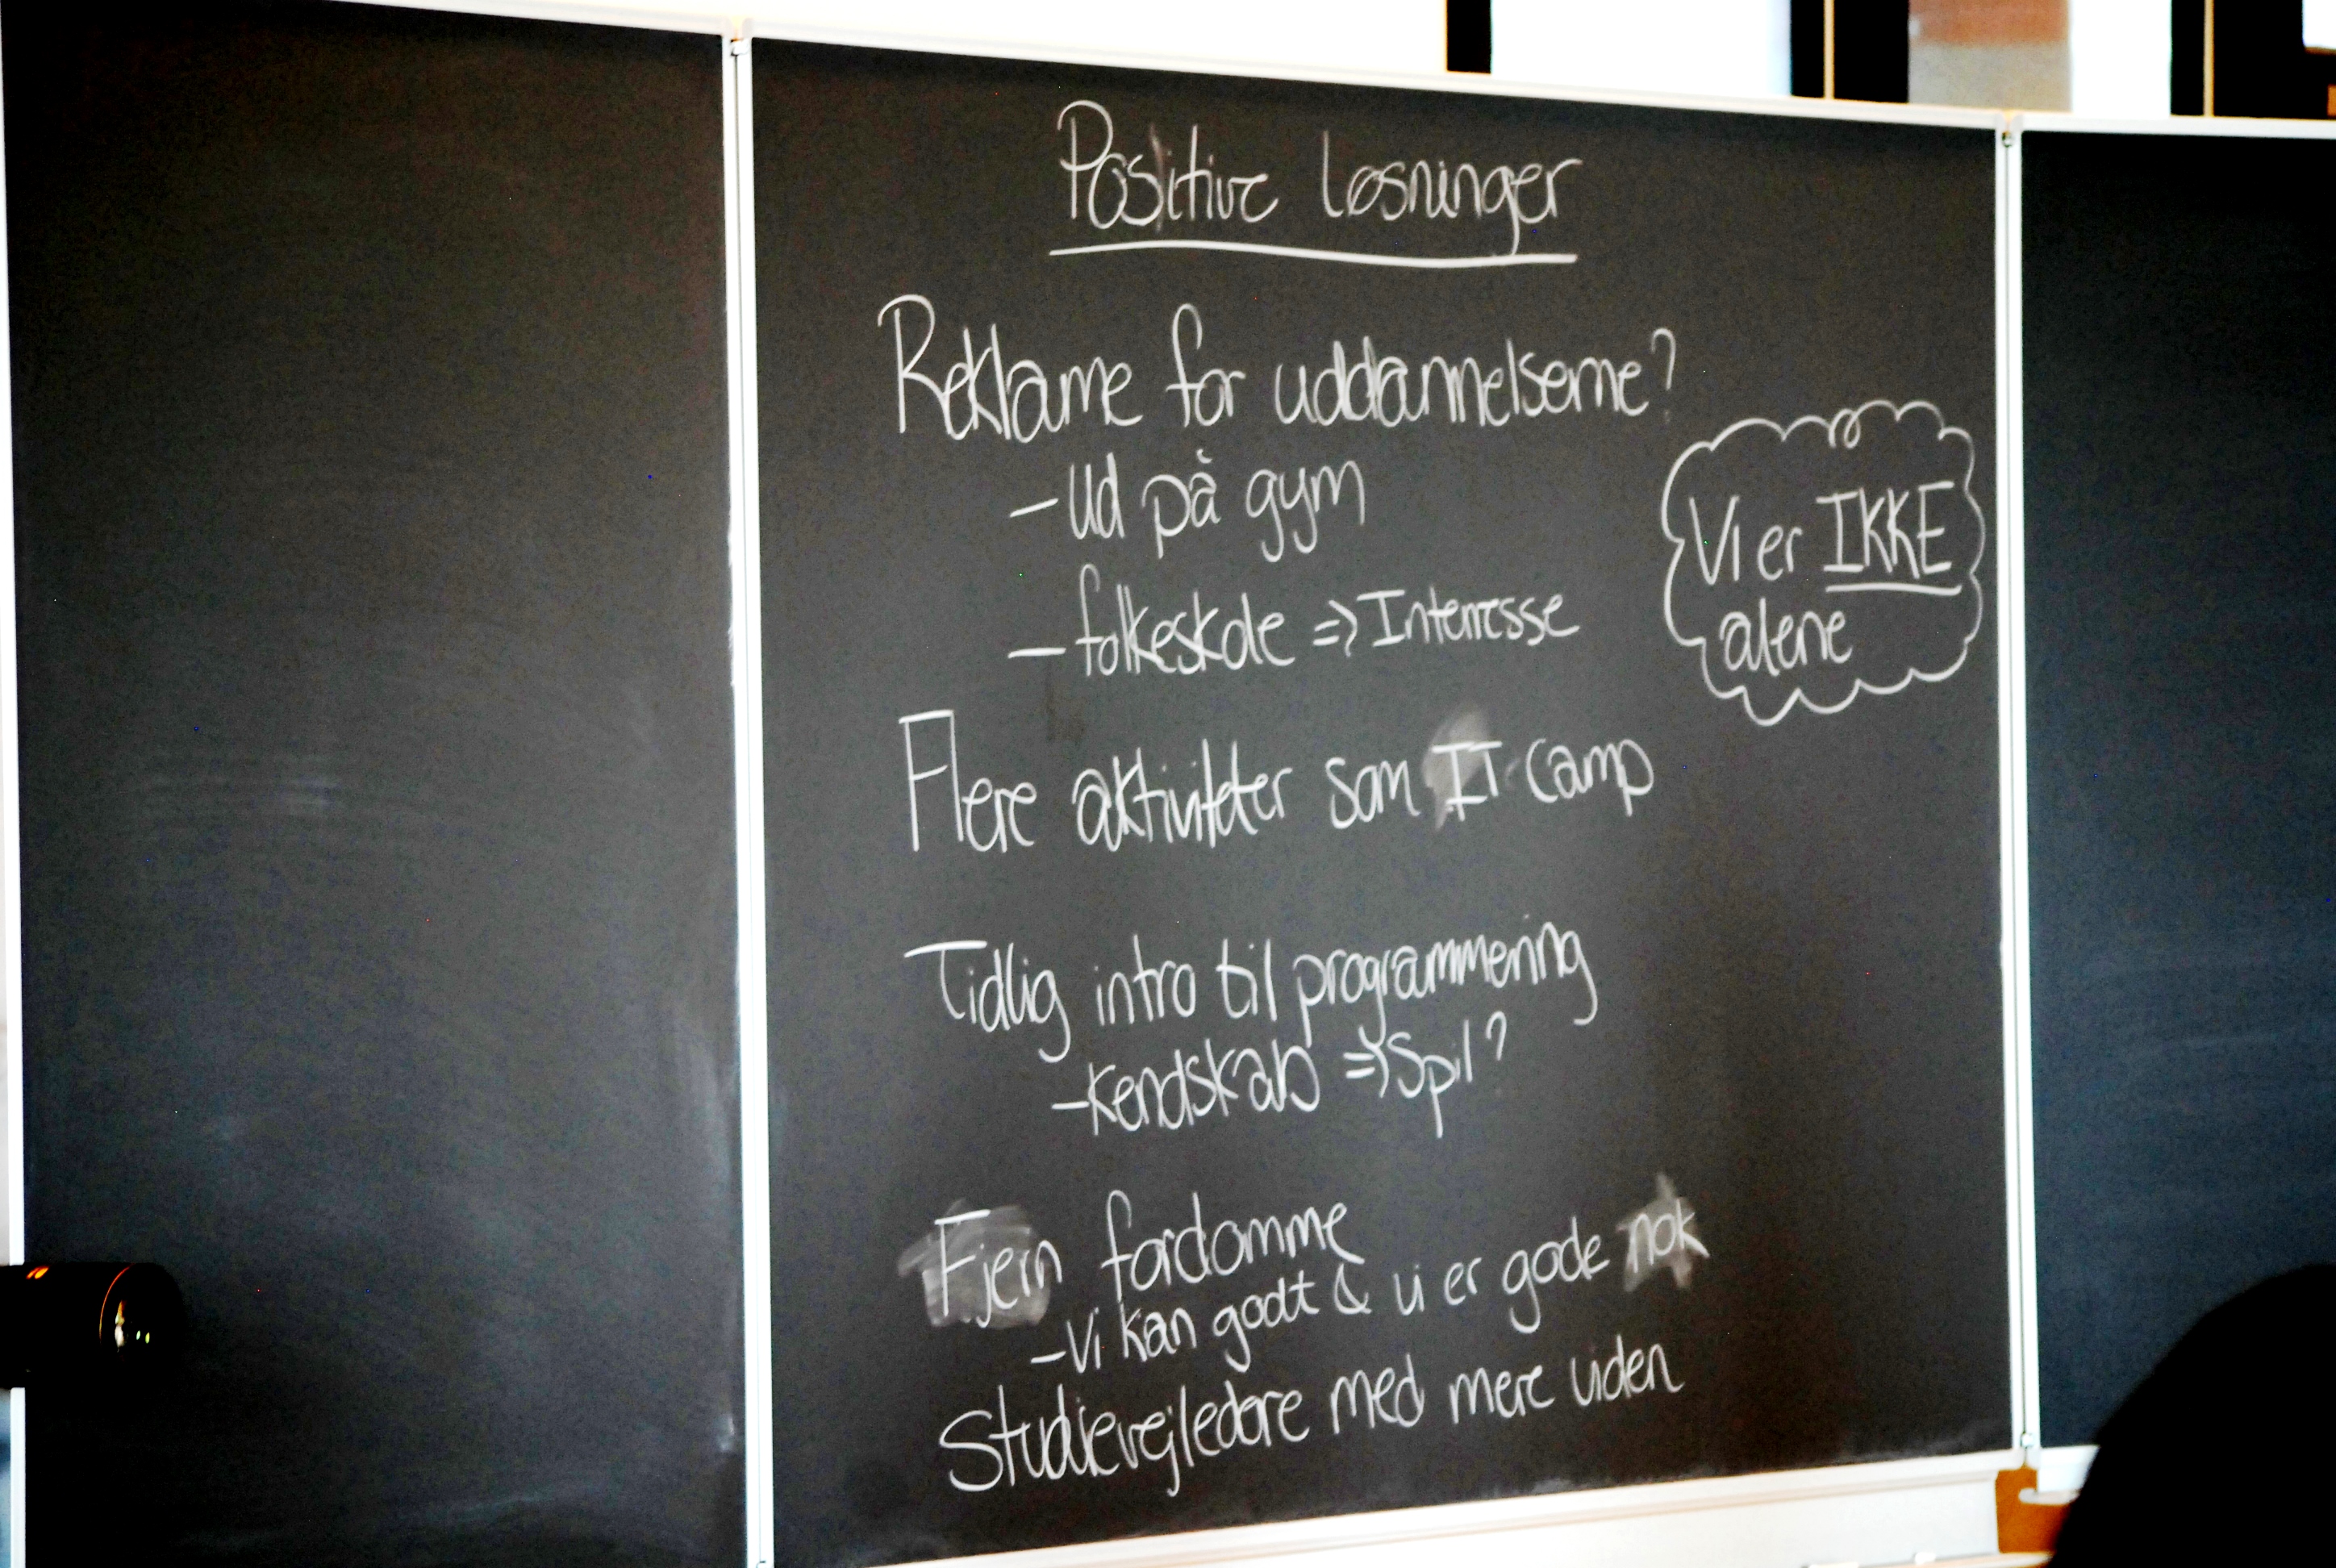 Positive løsninger
Reklame for uddannelserne?
- Ud på gym
- folkeskole => Interresse
Vi er IKKE
alene
Flere aktiviteter som IT-camp
Tidlig intro til programmering
- Kendskab => Spil?
Fjern fordomme
- Vi kan godt & vi er gode nok
Studievejledere med mere viden